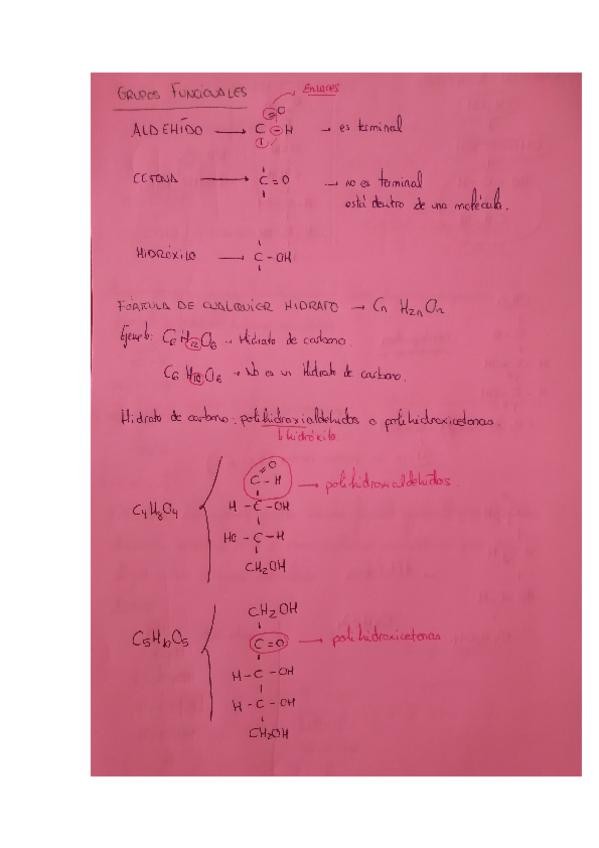 GRUPOS FUNCIONALES
Enlaces
=O
ALDEHÍDO → C - H → es terminal
1
CETONA → C = O → no es terminal
está dentro de una molécula.
HIDRÓXILO → C - OH
FÓRMULA DE CUALQUIER HIDRATO → Cn H2n On
Ejemplo: C6 H12 O6 → Hidrato de carbono.
C6 H10 O6 → No es un Hidrato de carbono.
Hidrato de carbono: polihidroxialdehidos o polihidroxicetonas.
hidróxilo
=O
C - H → polihidroxialdehidos.
C4H8O4
H - C - OH
HO - C - H
CH2OH
CH2OH
C5H10O5
C = O → polihidroxicetonas
H - C - OH
H - C - OH
CH2OH